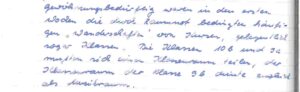 gewöhnungsbedürftig waren in den ersten
Wochen die durch Raumnot bedingten häufi-
gen „Wanderschaften" von Kursen, gelegentlich
sogar Klassen. Die Klassen 10 B und
mußten sich einen Klassenraum teilen, der
Klassenraum der Klasse 9 b diente zugleich
als Musikraum.